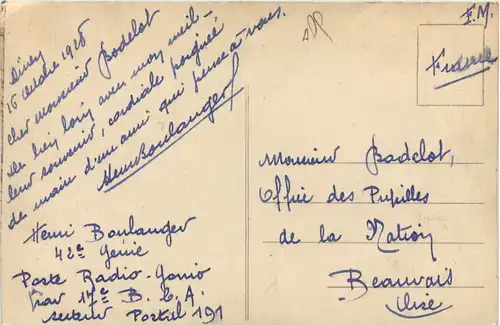 16 octobre 1925
cher monsieur Badelot
De bien loin avec mon meil-
leur souvenir, cordiale poignée
de main d'un ami qui pense à vous.
Henri Boulanger
Henri Boulanger
42e Génie
Poste Radio-Gonio
17e B. C. A.
secteur Postal 191
F.M.
France
Monsieur Badelot,
Office des Pupilles
de la Nation
Beauvais
Oise